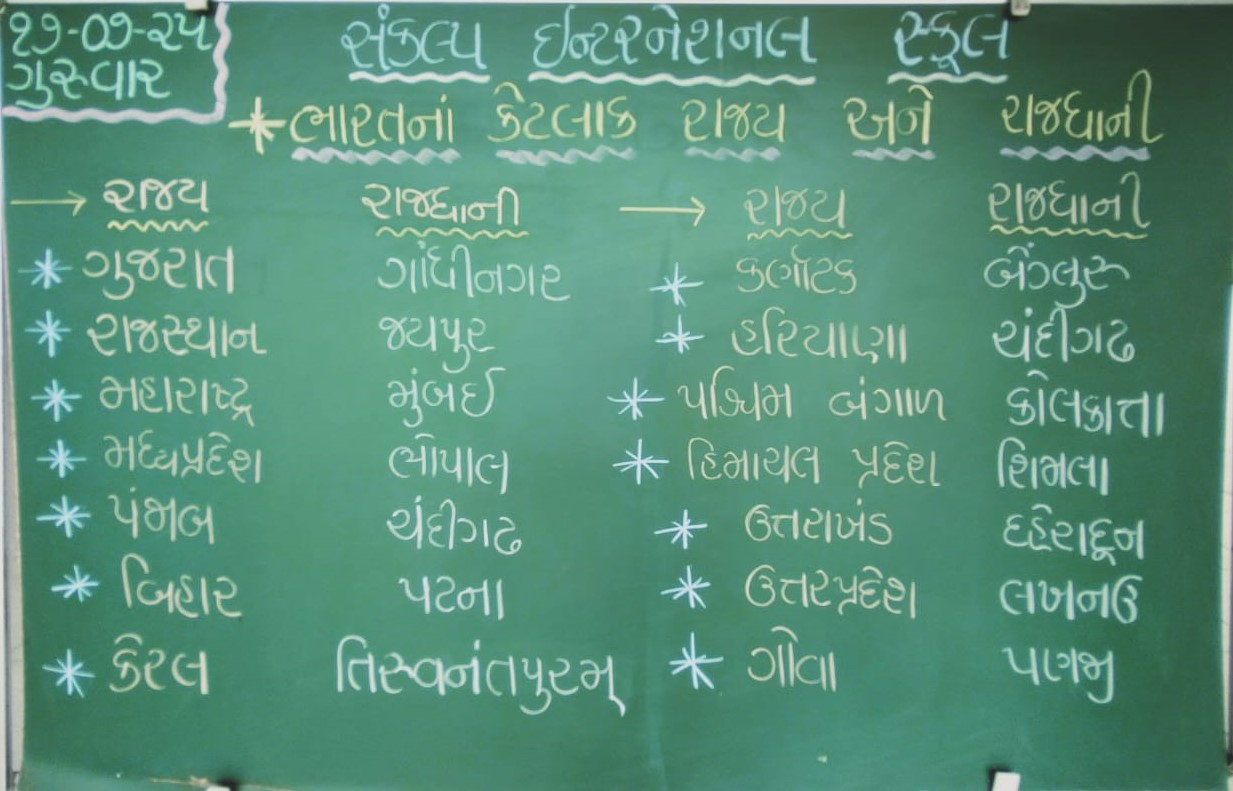 ૧૭-૦૭-૨૫
ગુરુવાર
સંકલ્પ ઈન્ટરનેશનલ સ્કૂલ
* ભારતનાં કેટલાક રાજય અને રાજધાની
→ રાજય રાજધાની → રાજય રાજધાની
* ગુજરાત ગાંધીનગર * કર્ણાટક બેંગ્લુરુ
* રાજસ્થાન જયપુર * હરિયાણા ચંદીગઢ
* મહારાષ્ટ્ર મુંબઈ * પશ્ચિમ બંગાળ કોલકાત્તા
* મધ્યપ્રદેશ ભોપાલ * હિમાચલ પ્રદેશ શિમલા
* પંજાબ ચંદીગઢ * ઉત્તરાખંડ દહેરાદૂન
* બિહાર પટના * ઉત્તરપ્રદેશ લખનઉ
* કેરલ તિરુવનંતપુરમ્ * ગોવા પણજી